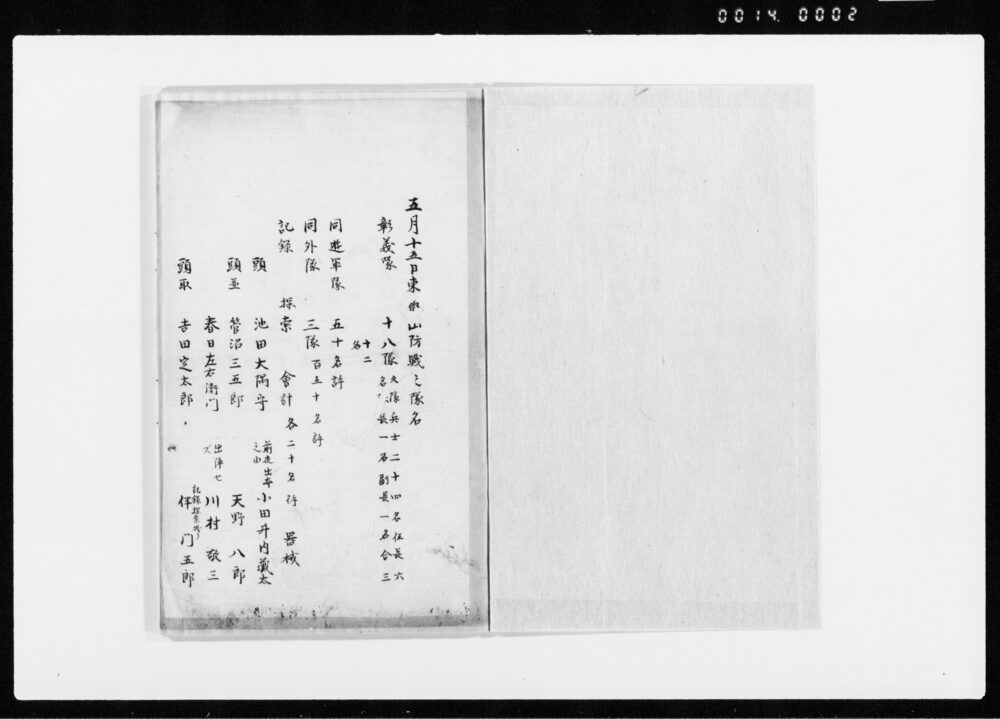 0014 0002
五月十五日東叡山防戦之隊名
彰義隊 十八隊 久隊兵士二十四名伍長六
名 長一名副長一名合三
十二
名
同遊軍隊 五十名許
同外隊 三隊 百五十名許
記録 探索 會計 各二十名許 器械
頭 池田大隅守 前夜出奔 小田井内蔵太
之由
頭並 菅沼三五郎 天野八郎
春日左右衛門 出陣セ 川村敬三
ズ
頭取 吉田定太郎 記録探索掛り 伴門五郎